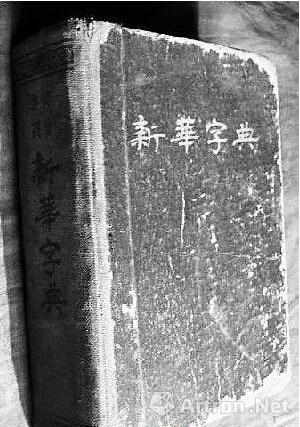 新華字典
新華字典
Artron.Net